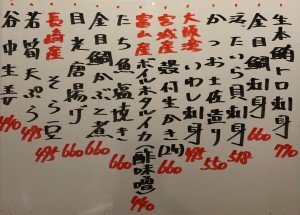 生本鮪トロ刺身 770
金目鯛刺身 660
真たいら貝刺身 528
かつお土佐造り 550
大阪湾 いわし刺身 495
宮城産 殻付生かき(2ヶ) 660
富山産 ボイルホタルイカ(酢味噌) 440
たち魚塩焼き 660
金目鯛かぶと煮 660
目光唐揚げ 660
長崎産 そら豆 495
若筍天ぷら 495
谷中生姜 440